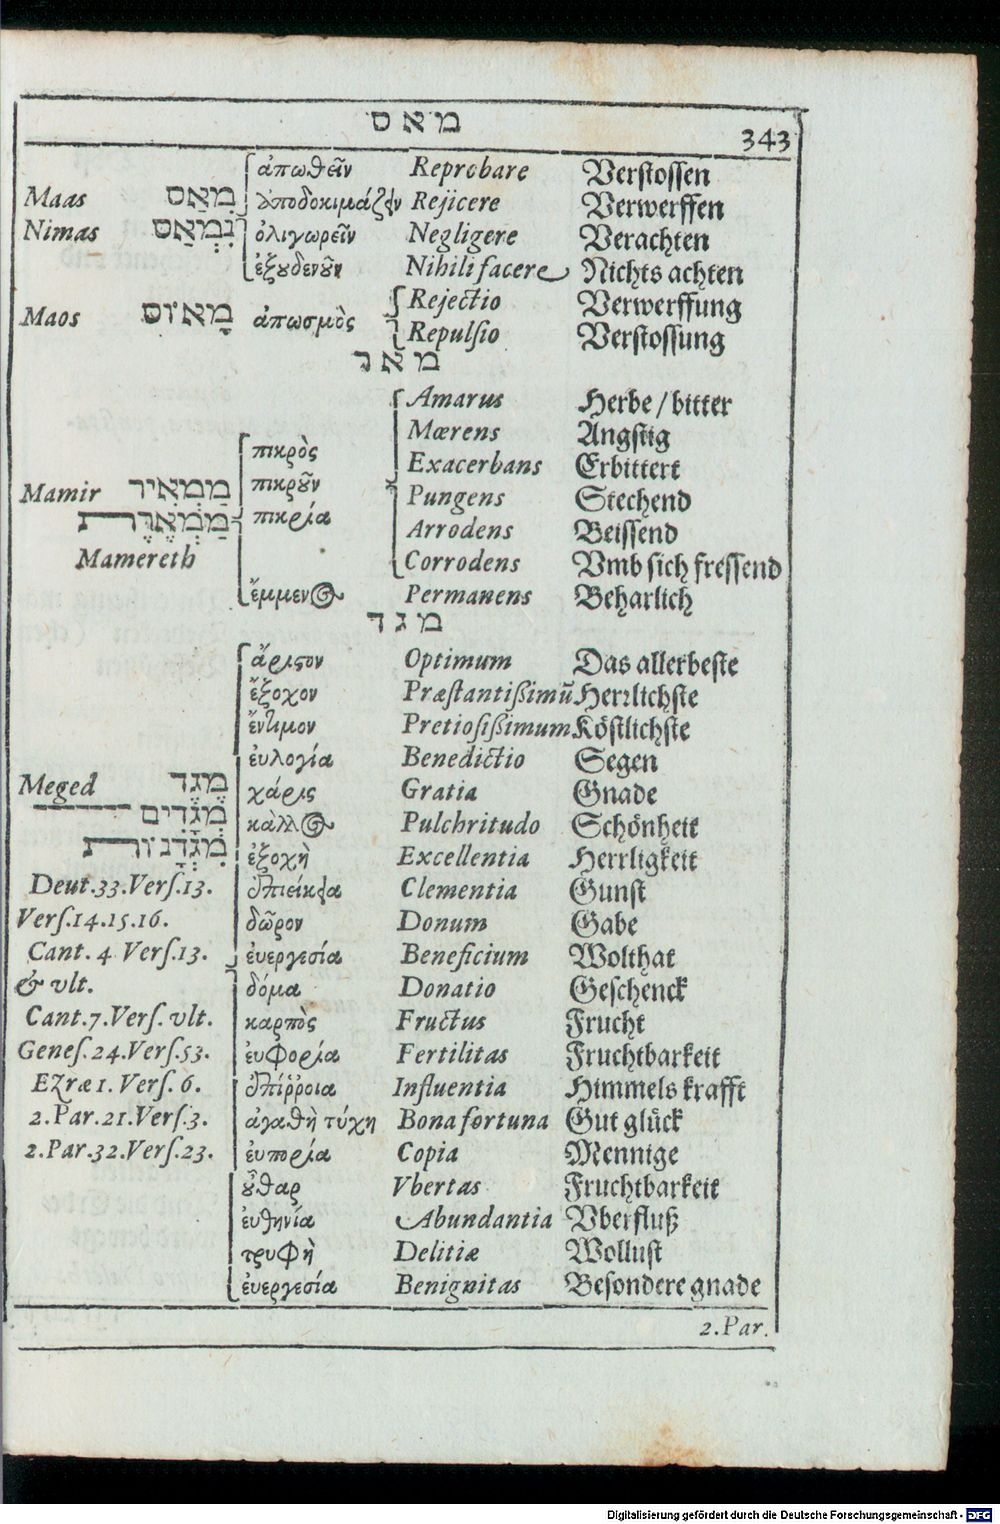 מאס
343
ἀπωθεῖν Reprobare Verstossen
Maas מָאַס ἀποδοκιμάζειν Rejicere Verwerffen
Nimas נִמְאַס ὀλιγωρεῖν Negligere Verachten
ἐξουδενοῦν Nihili facere Nichts achten
Maos מָאוֹס ἀπωσμὸς Rejectio Verwerffung
Repulsio Verstossung
מאר
Amarus Herbe / bitter
Mærens Angstig
πικρὸς Exacerbans Erbittert
Mamir מַמְאִיר πικροῦν Pungens Stechend
מַמְאֶרֶת πικρία Arrodens Beissend
Mamereth Corrodens Vmb sich fressend
ἔμμενος Permanens Beharlich
מגד
ἄριστον Optimum Das allerbeste
ἔξοχον Præstantißimũ Herrlichste
ἔντιμον Pretiosißimum Köstlichste
ἐυλογία Benedictio Segen
Meged מֶגֶד χάρις Gratia Gnade
מְגָדִים κάλλος Pulchritudo Schönheit
מִגְדָּנוֹת ἐξοχὴ Excellentia Herrligkeit
Deut.33.Vers.13. ἐπιείκεια Clementia Gunst
Vers.14.15.16. δῶρον Donum Gabe
Cant. 4 Vers.13. ἐυεργεσία Beneficium Wolthat
& vlt. δόμα Donatio Geschenck
Cant.7.Vers. vlt. καρπὸς Fructus Frucht
Genes.24.Vers.53. ἐυφορία Fertilitas Fruchtbarkeit
Ezræ 1. Vers. 6. ἐπίῤῥοια Influentia Himmels krafft
2.Par.21.Vers.3. ἀγαθὴ τύχη Bona fortuna Gut glück
2.Par.32.Vers.23. ἐυπορία Copia Mennige
οὖθαρ Vbertas Fruchtbarkeit
ἐυθηνία Abundantia Vberfluß
τρυφὴ Delitiæ Wollust
ἐυεργεσία Benignitas Besondere gnade
2.Par.
Digitalisierung gefördert durch die Deutsche Forschungsgemeinschaft - DFG